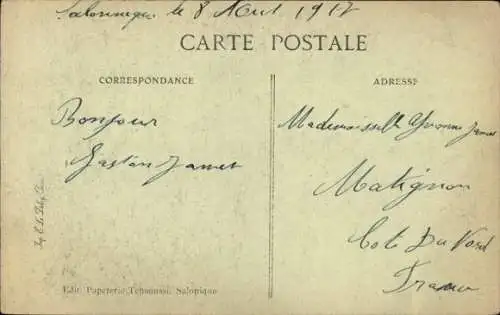 Salonique le 8 Aout 1917
CARTE POSTALE
CORRESPONDANCE
ADRESSE
Bonjour
Gaston Jamet
Mademoiselle Yvonne Jamet
Matignon
Cote Du Nord
France
Edit. Papeterie Tchaoussi. Salonique